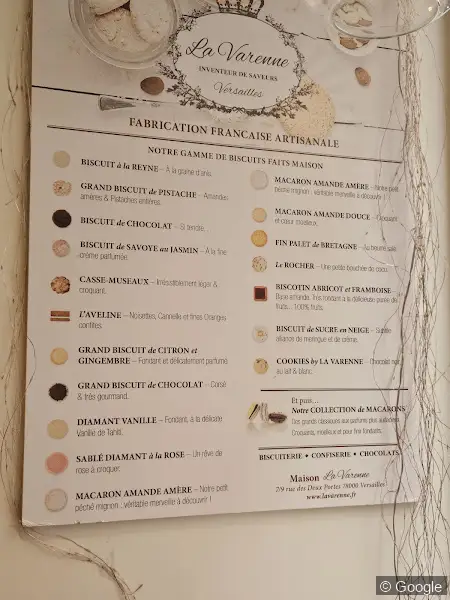 La Varenne
INVENTEUR DE SAVEURS
Versailles
FABRICATION FRANCAISE ARTISANALE
NOTRE GAMME DE BISCUITS FAITS MAISON
BISCUIT à la REYNE – À la graine d'anis.
GRAND BISCUIT de PISTACHE – Amandes
amères & Pistaches entières.
BISCUIT de CHOCOLAT – Si tendre...
BISCUIT de SAVOYE au JASMIN – À la fine
crème parfumée.
CASSE-MUSEAUX – Irrésistiblement léger &
croquant.
L'AVELINE – Noisettes, Cannelle et fines Oranges
confites.
GRAND BISCUIT de CITRON et
GINGEMBRE – Fondant et délicatement parfumé.
GRAND BISCUIT de CHOCOLAT – Corsé
& très gourmand.
DIAMANT VANILLE – Fondant, à la délicate
Vanille de Tahiti.
SABLÉ DIAMANT à la ROSE – Un rêve de
rose à croquer.
MACARON AMANDE AMÈRE – Notre petit
péché mignon : véritable merveille à découvrir !
MACARON AMANDE AMÈRE – Notre petit
péché mignon : véritable merveille à découvrir !
MACARON AMANDE DOUCE – Croquant
et cœur moelleux.
FIN PALET de BRETAGNE – Au beurre salé.
Le ROCHER – Une petite bouchée de coco.
BISCOTIN ABRICOT et FRAMBOISE –
Base amande. Très fondant à la délicieuse purée de
fruits... 100% fruits.
BISCUIT de SUCRE en NEIGE – Subtile
alliance de meringue et de crème.
COOKIES by LA VARENNE – Chocolat noir,
au lait & blanc.
Et puis...
Notre COLLECTION de MACARONS
Des grands classiques aux parfums plus audacieux.
Croquants, moelleux et pour finir fondants.
BISCUITERIE • CONFISERIE • CHOCOLATS
Maison La Varenne
7/9 rue des Deux Portes 78000 Versailles
www.lavarenne.fr
© Google